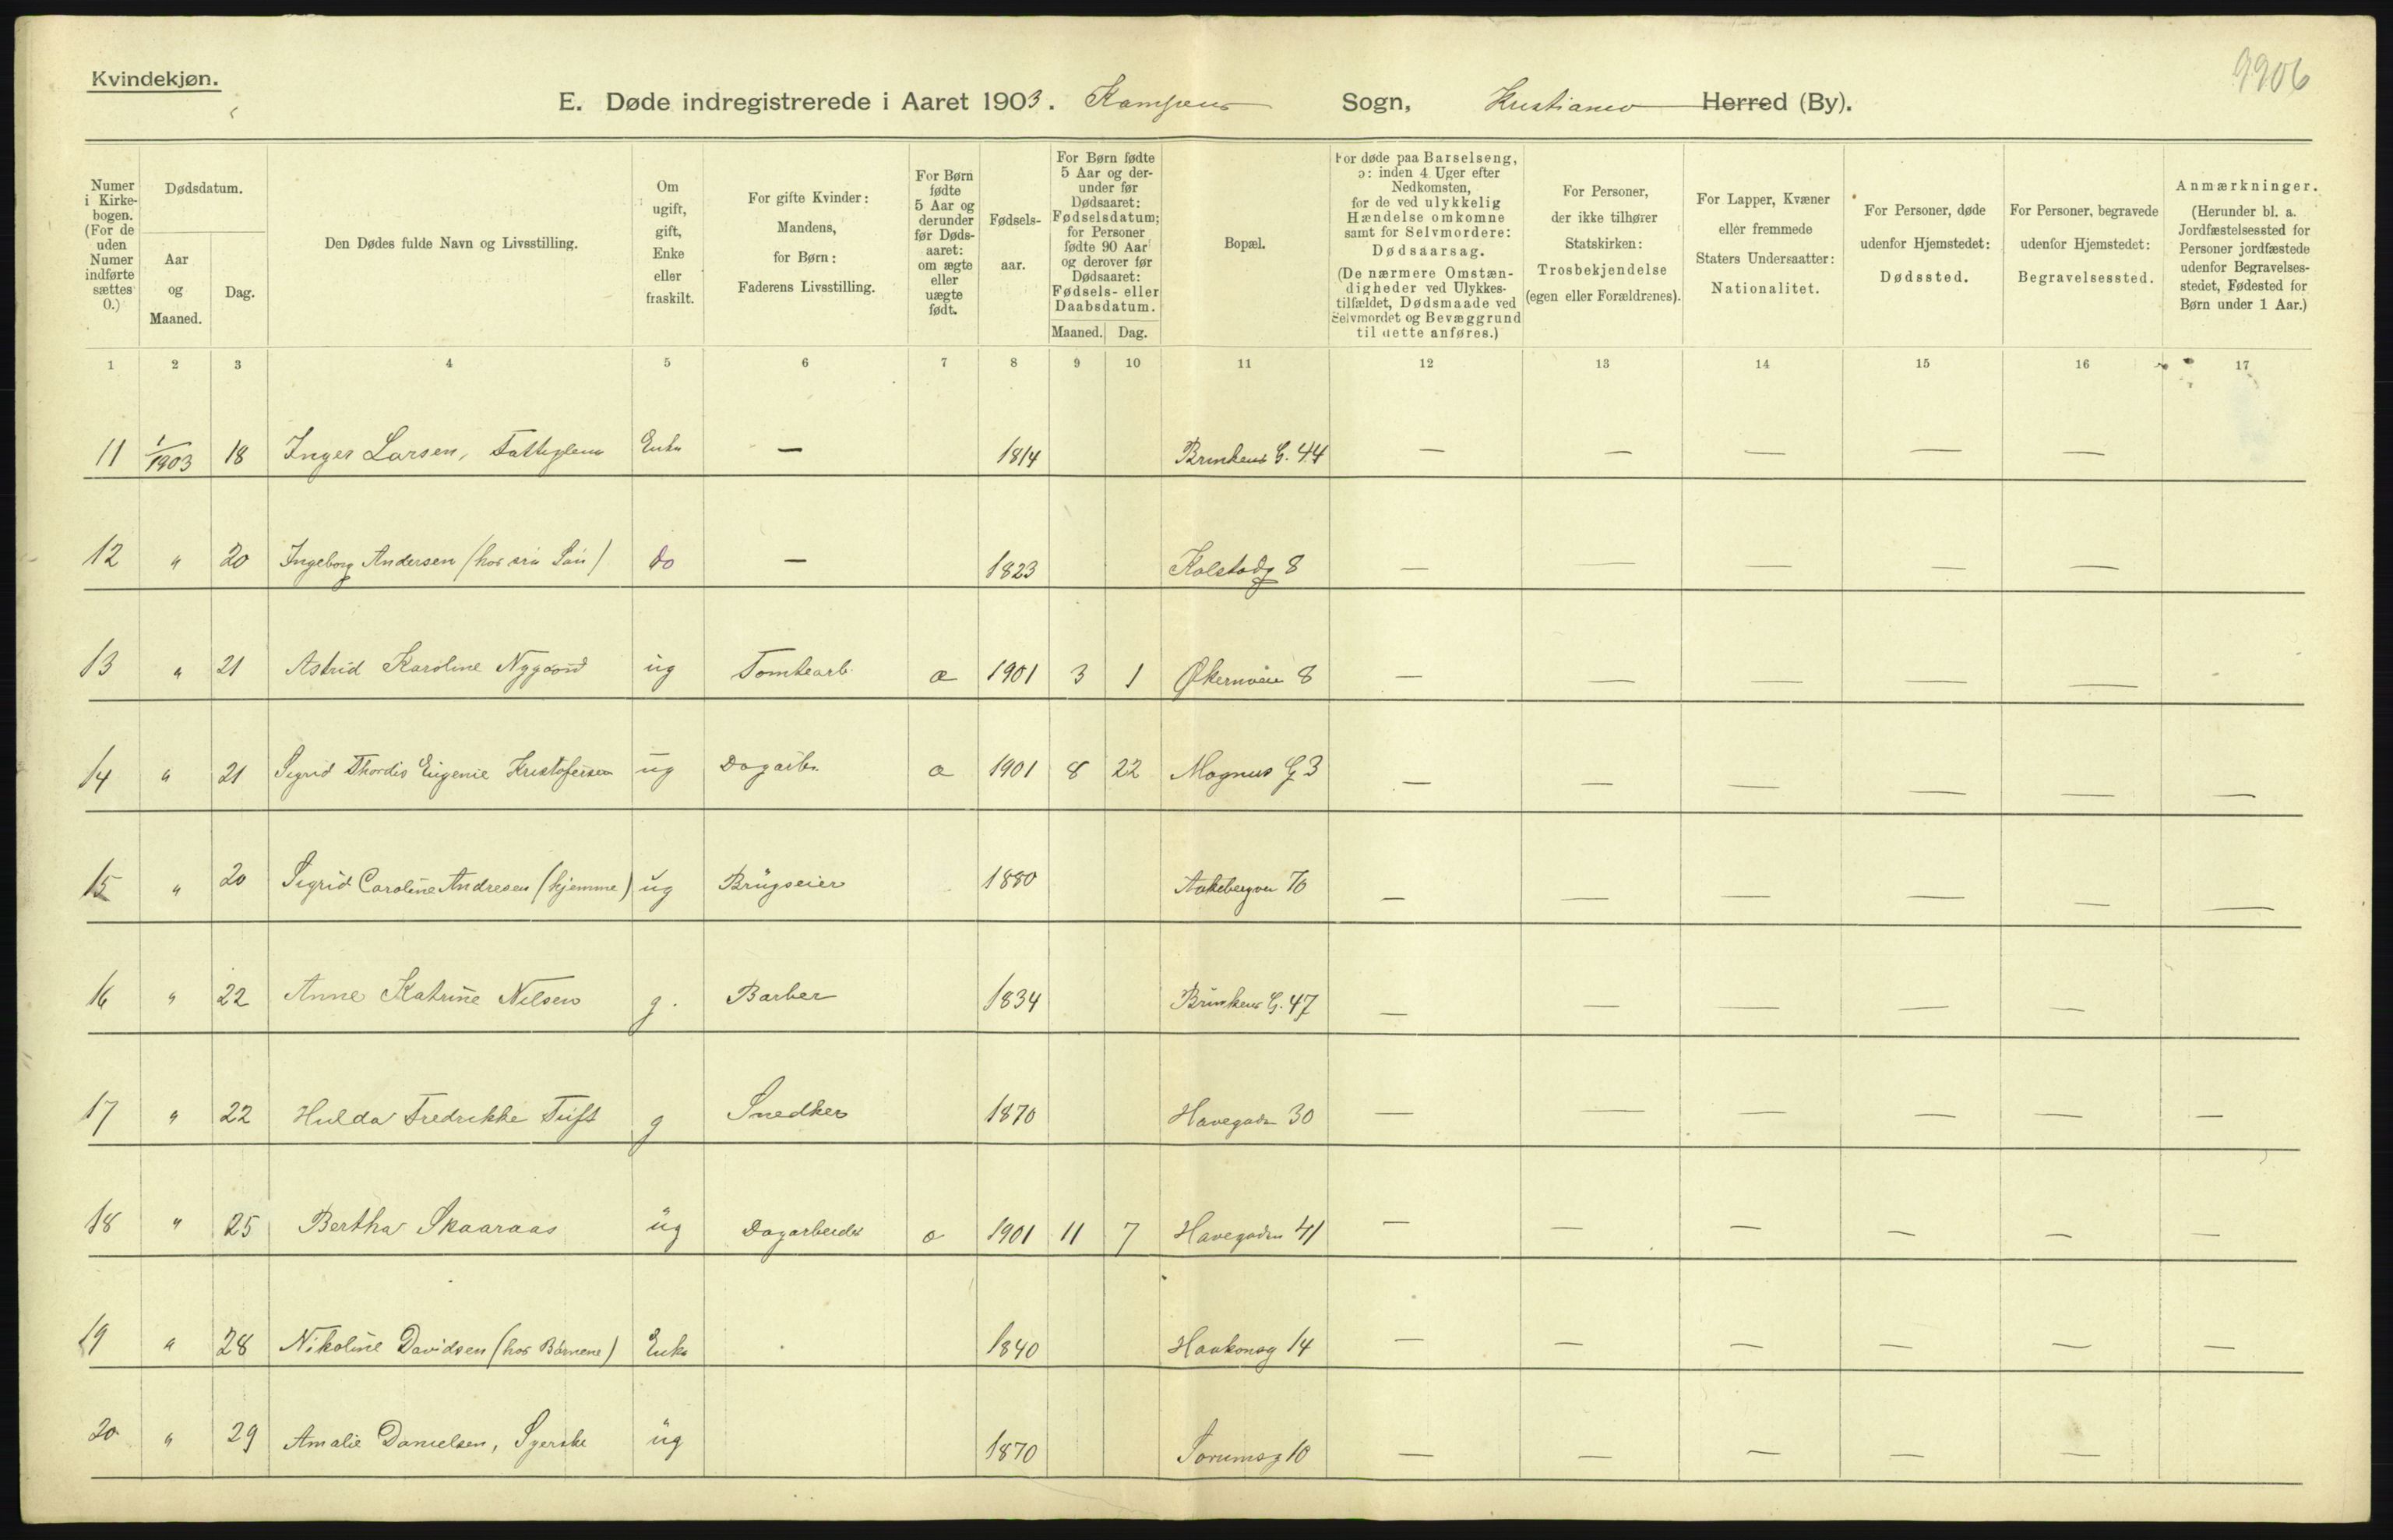 Kvindekjøn.
9906
E. Døde indregistrerede i Aaret 1903. Kampens Sogn, Kristiania Herred (By).
Numer i Kirkebogen. (For de uden Numer indførte sættes 0.)
Dødsdatum.
Aar og Maaned.
Dag.
Den Dødes fulde Navn og Livsstilling.
Om ugift, gift, Enke eller fraskilt.
For gifte Kvinder: Mandens, for Børn: Faderens Livsstilling.
For Børn fødte 5 Aar og derunder før Dødsaaret: om ægte eller uægte født.
Fødselsaar.
For Børn fødte 5 Aar og derunder før Dødsaaret: Fødselsdatum; for Personer fødte 90 Aar og derover før Dødsaaret: Fødsels- eller Daabsdatum.
Maaned. Dag.
Bopæl.
For døde paa Barselseng, ɔ: inden 4 Uger efter Nedkomsten, for de ved ulykkelig Hændelse omkomne samt for Selvmordere: Dødsaarsag. (De nærmere Omstændigheder ved Ulykkestilfældet, Dødsmaade ved Selvmordet og Bevæggrund til dette anføres.)
For Personer, der ikke tilhører Statskirken: Trosbekjendelse (egen eller Forældrenes).
For Lapper, Kvæner eller fremmede Staters Undersaatter: Nationalitet.
For Personer, døde udenfor Hjemstedet: Dødssted.
For Personer, begravede udenfor Hjemstedet: Begravelsessted.
Anmærkninger. (Herunder bl. a. Jordfæstelsessted for Personer jordfæstede udenfor Begravelsesstedet, Fødested for Børn under 1 Aar.)
1 2 3 4 5 6 7 8 9 10 11 12 13 14 15 16 17
11 1/1903 18 Inger Larsen, Fattiglem Enke — 1814 Brinkens G. 44 — — — — —
12 " 20 Ingeborg Andersen (hos sin Søn) do — 1823 Kolstadg 8 — — — — —
13 " 21 Astrid Karoline Nygaard ug Tomtearb. æ 1901 3 1 Økernveie 8 — — — — —
14 " 21 Sigrid Thordis Eugenie Kristofersen ug Dagarb. æ 1901 8 22 Magnus G 3 — — — — — —
15 " 20 Sigrid Caroline Andresen (hjemme) ug Brugseier 1880 Aakebergvei 70 — — — — — —
16 " 22 Anne Katrine Nilsen g. Barber 1834 Brinkens G. 47 — — — — —
17 " 22 Hulda Fredrikke Tuft g Snedker 1870 Havegaden 30 — — — — — —
18 " 25 Bertha Skaaraas ug Dagarbeider æ 1901 11 7 Havegaden 41 — — — — — —
19 " 28 Nikoline Davidsen (hos Børnene) Enke 1840 Haakonsg 14 — — — — — —
20 " 29 Amalie Danielsen, Syerske ug 1870 Sørumsg 10 — — — — —